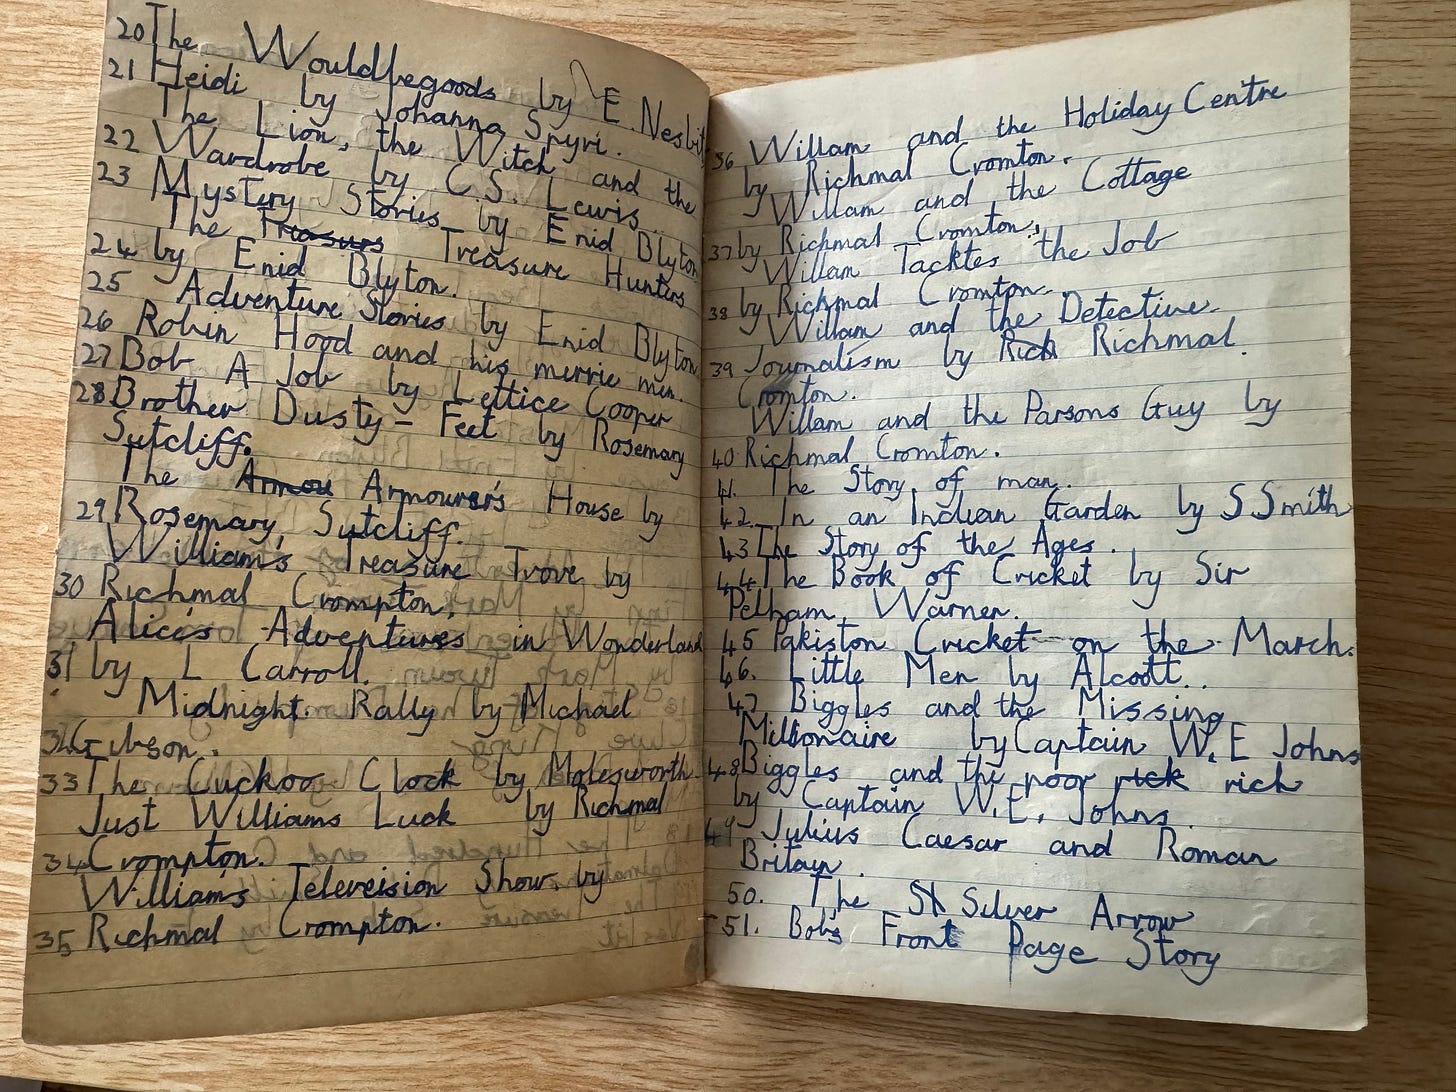 20 The Wouldbegoods by E. Nesbit
21 Heidi by Johanna Spyri.
The Lion, the Witch and the
22 Wardrobe by C.S. Lewis
23 Mystery Stories by Enid Blyton
The Treasure Hunters
24 by Enid Blyton.
25 Adventure Stories by Enid Blyton
26 Robin Hood and his merrie men.
27 Bob A Job by Lettice Cooper
28 Brother Dusty - Feet by Rosemary
Sutcliff.
The Armou Armourer's House by
29 Rosemary Sutcliff.
William's Treasure Trove by
30 Richmal Crompton.
Alice's Adventures in Wonderland
31 by L Carroll.
Midnight Rally by Michael
32 Gibson.
33 The Cuckoo Clock by Molesworth
Just Williams Luck by Richmal
34 Crompton.
William's Televeision Show by
35 Richmal Crompton.
36 Willam and the Holiday Centre
by Richmal Cromton.
Willam and the Cottage
37 by Richmal Cromton.
Willam Tackles the Job
38 by Richmal Cromton.
Willam and the Detective.
39 Journalism by Rich Richmal.
Cromton.
Willam and the Parsons Guy by
40 Richmal Cromton.
41. The Story of man.
42. In an Indian Garden by S Smith
43 The Story of the Ages.
44 The Book of Cricket by Sir
Pelham Warner.
45 Pakiston Cricket on the March.
46. Little Men by Alcott.
47 Biggles and the Missing
Millionaire by Captain W.E Johns
48 Biggles and the poor rick rich
by Captain W.E. Johns.
49 Julius Caesar and Roman
Britain.
50. The Silver Arrow
51. Bob's Front Page Story